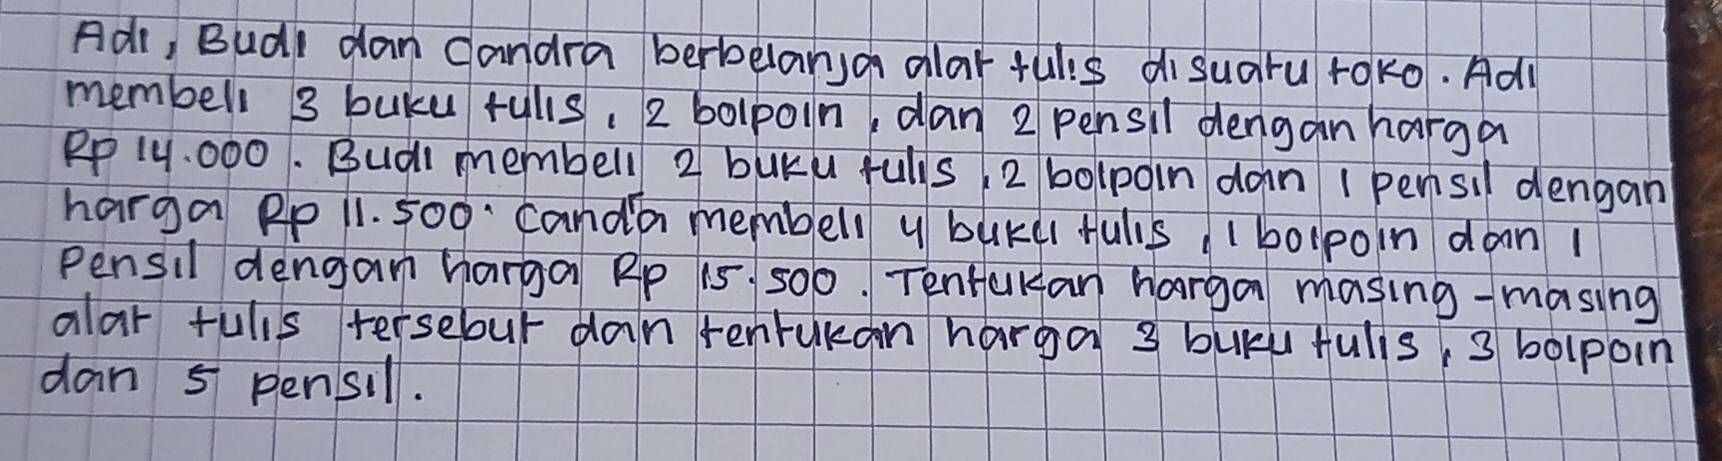 Adi, Budi dan Candra berbelanja alat tulis disuatu toko. Adi
membeli 3 buku tulis, 2 bolpoin, dan 2 pensil dengan harga
Rp 14.000. Budi membeli 2 buku tulis, 2 bolpoin dan 1 pensil dengan
harga Rp 11.500. Canda membeli 4 buku tulis, 1 bolpoin dan 1
pensil dengan harga Rp 15.500. Tentukan harga masing-masing
alat tulis tersebut dan tentukan harga 3 buku tulis, 3 bolpoin
dan 5 pensil.